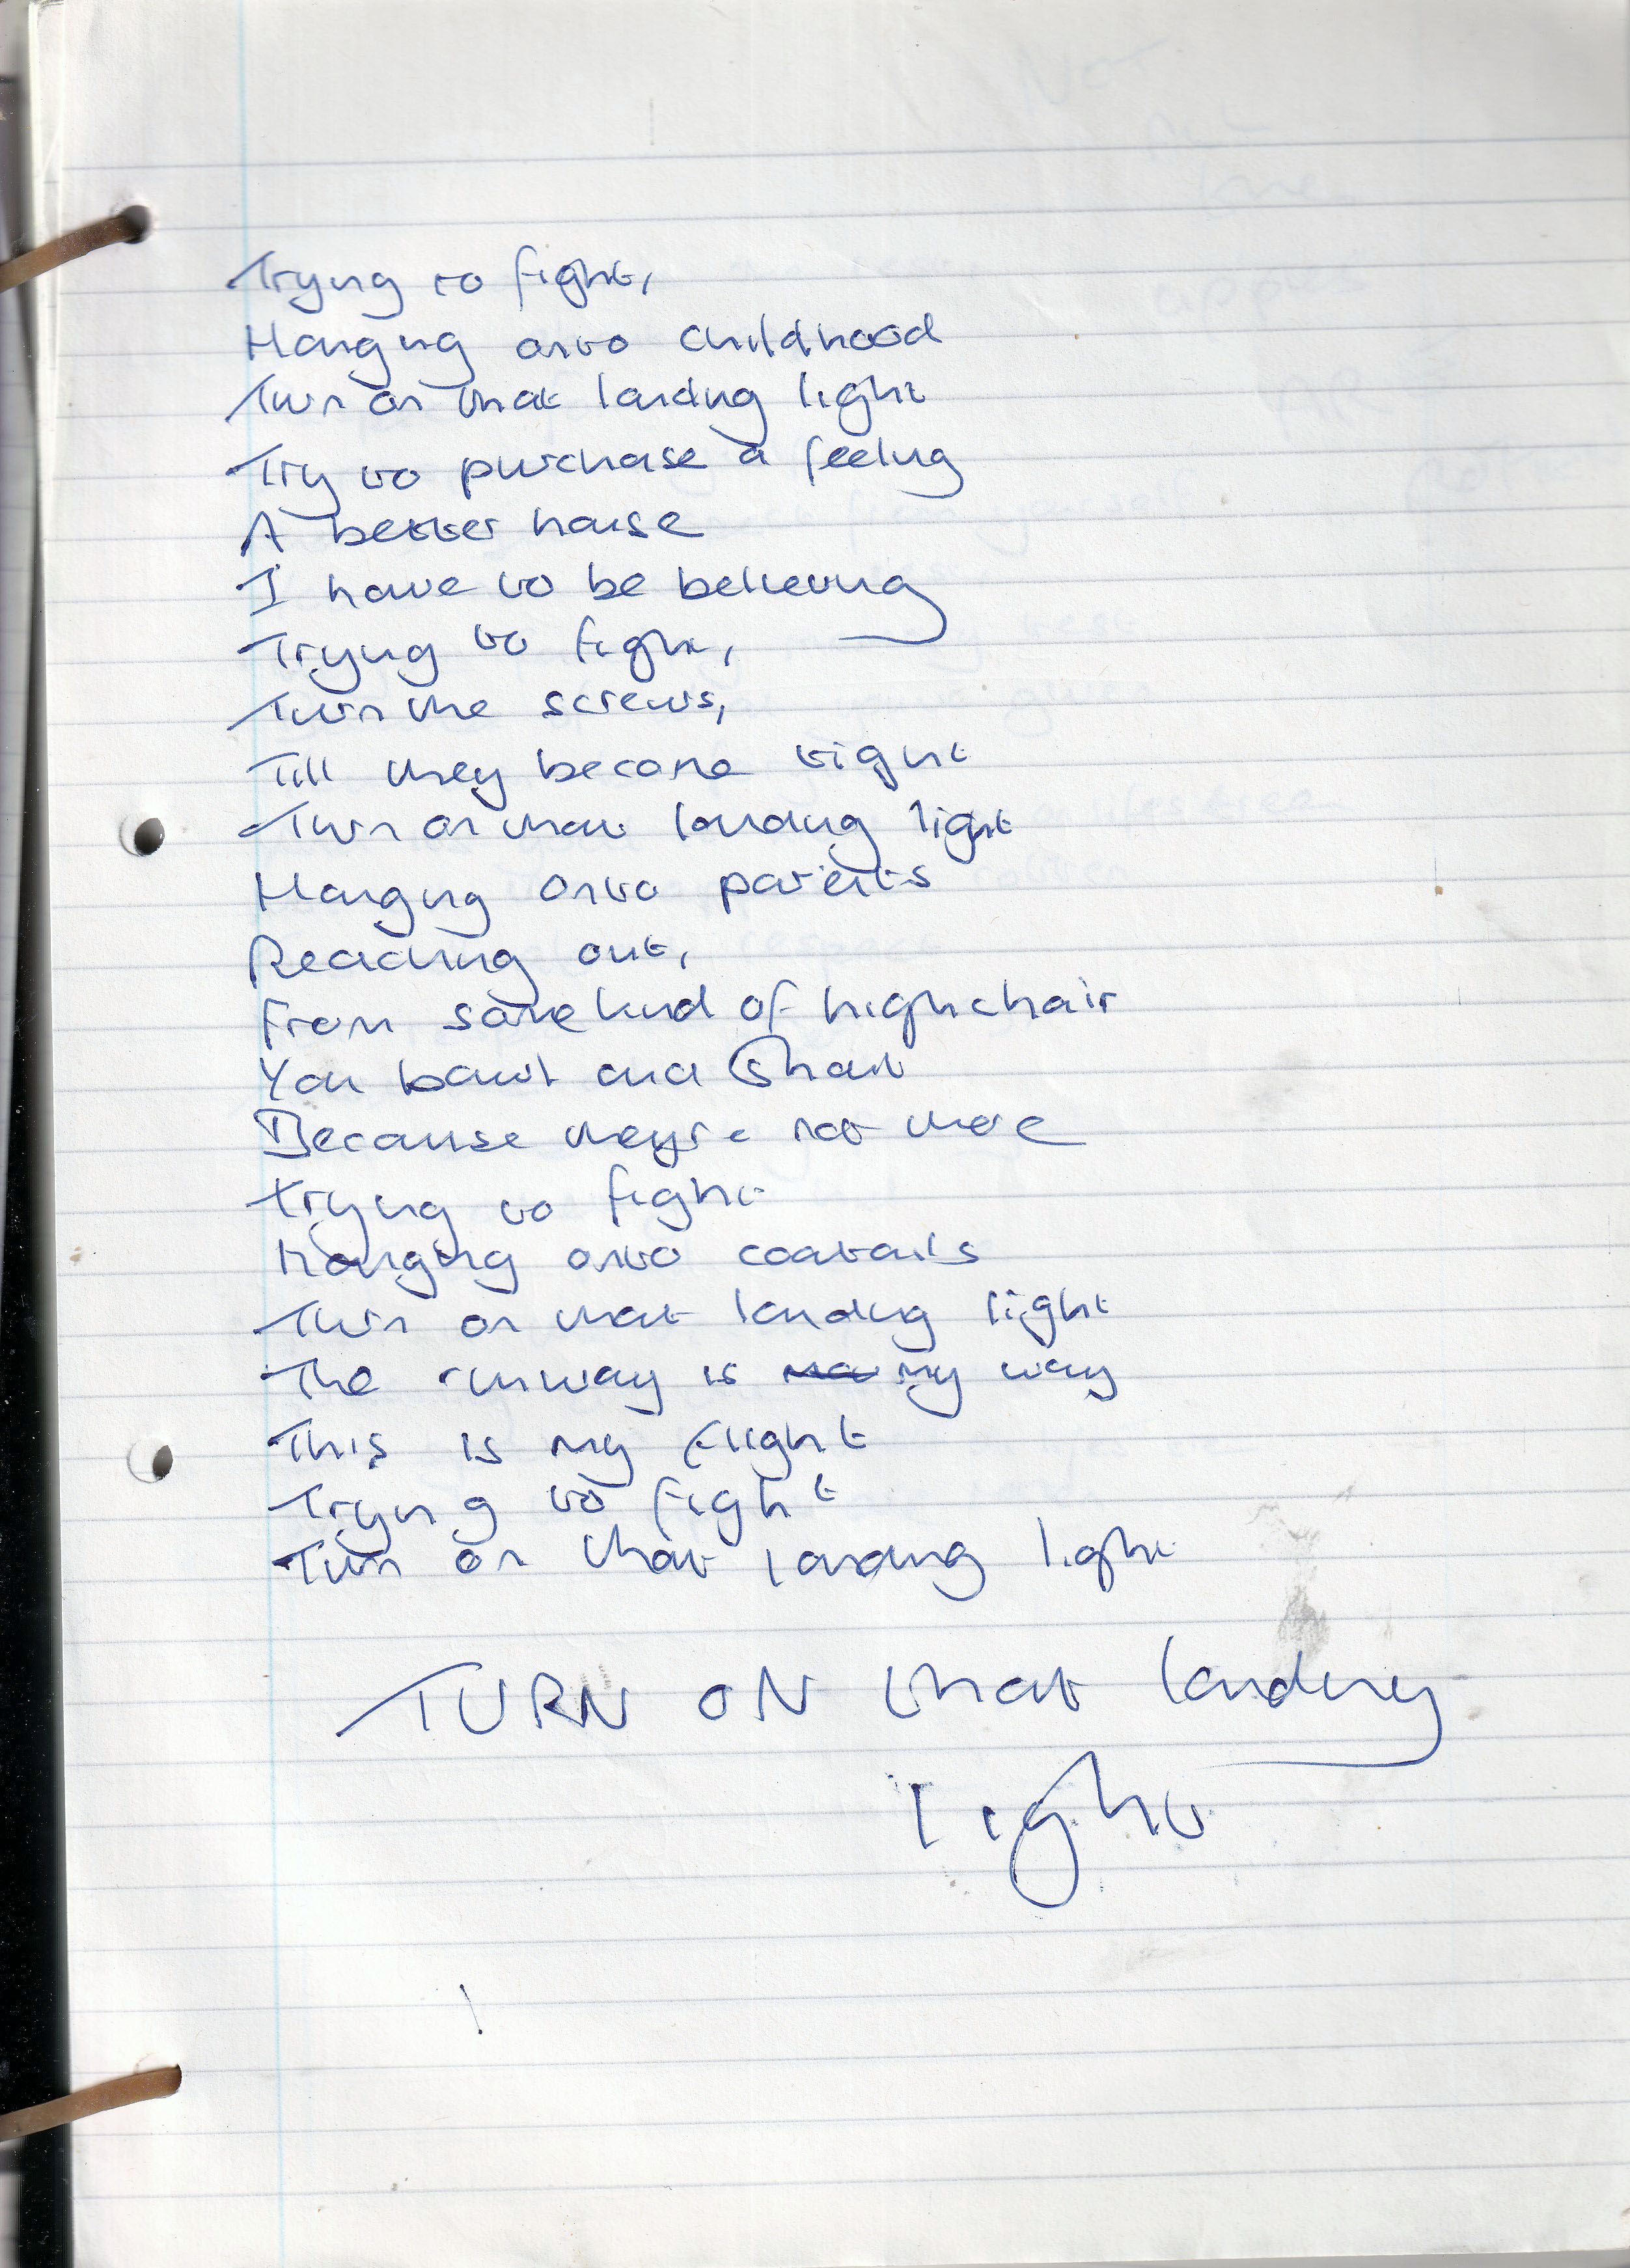 Trying to fight,
Hanging onto childhood
Turn on that landing light
Try to purchase a feeling
A better house
I have to be believing
Trying to fight,
Turn the screws,
Till they become tight
Turn on that landing light
Hanging onto parents
Reaching out,
From some kind of highchair
You bawl and shout
Because they're not there
Trying to fight
Hanging onto coatails
Turn on that landing light
The runway is my way
This is my flight
Trying to fight
Turn on that landing light
TURN ON that landing
light